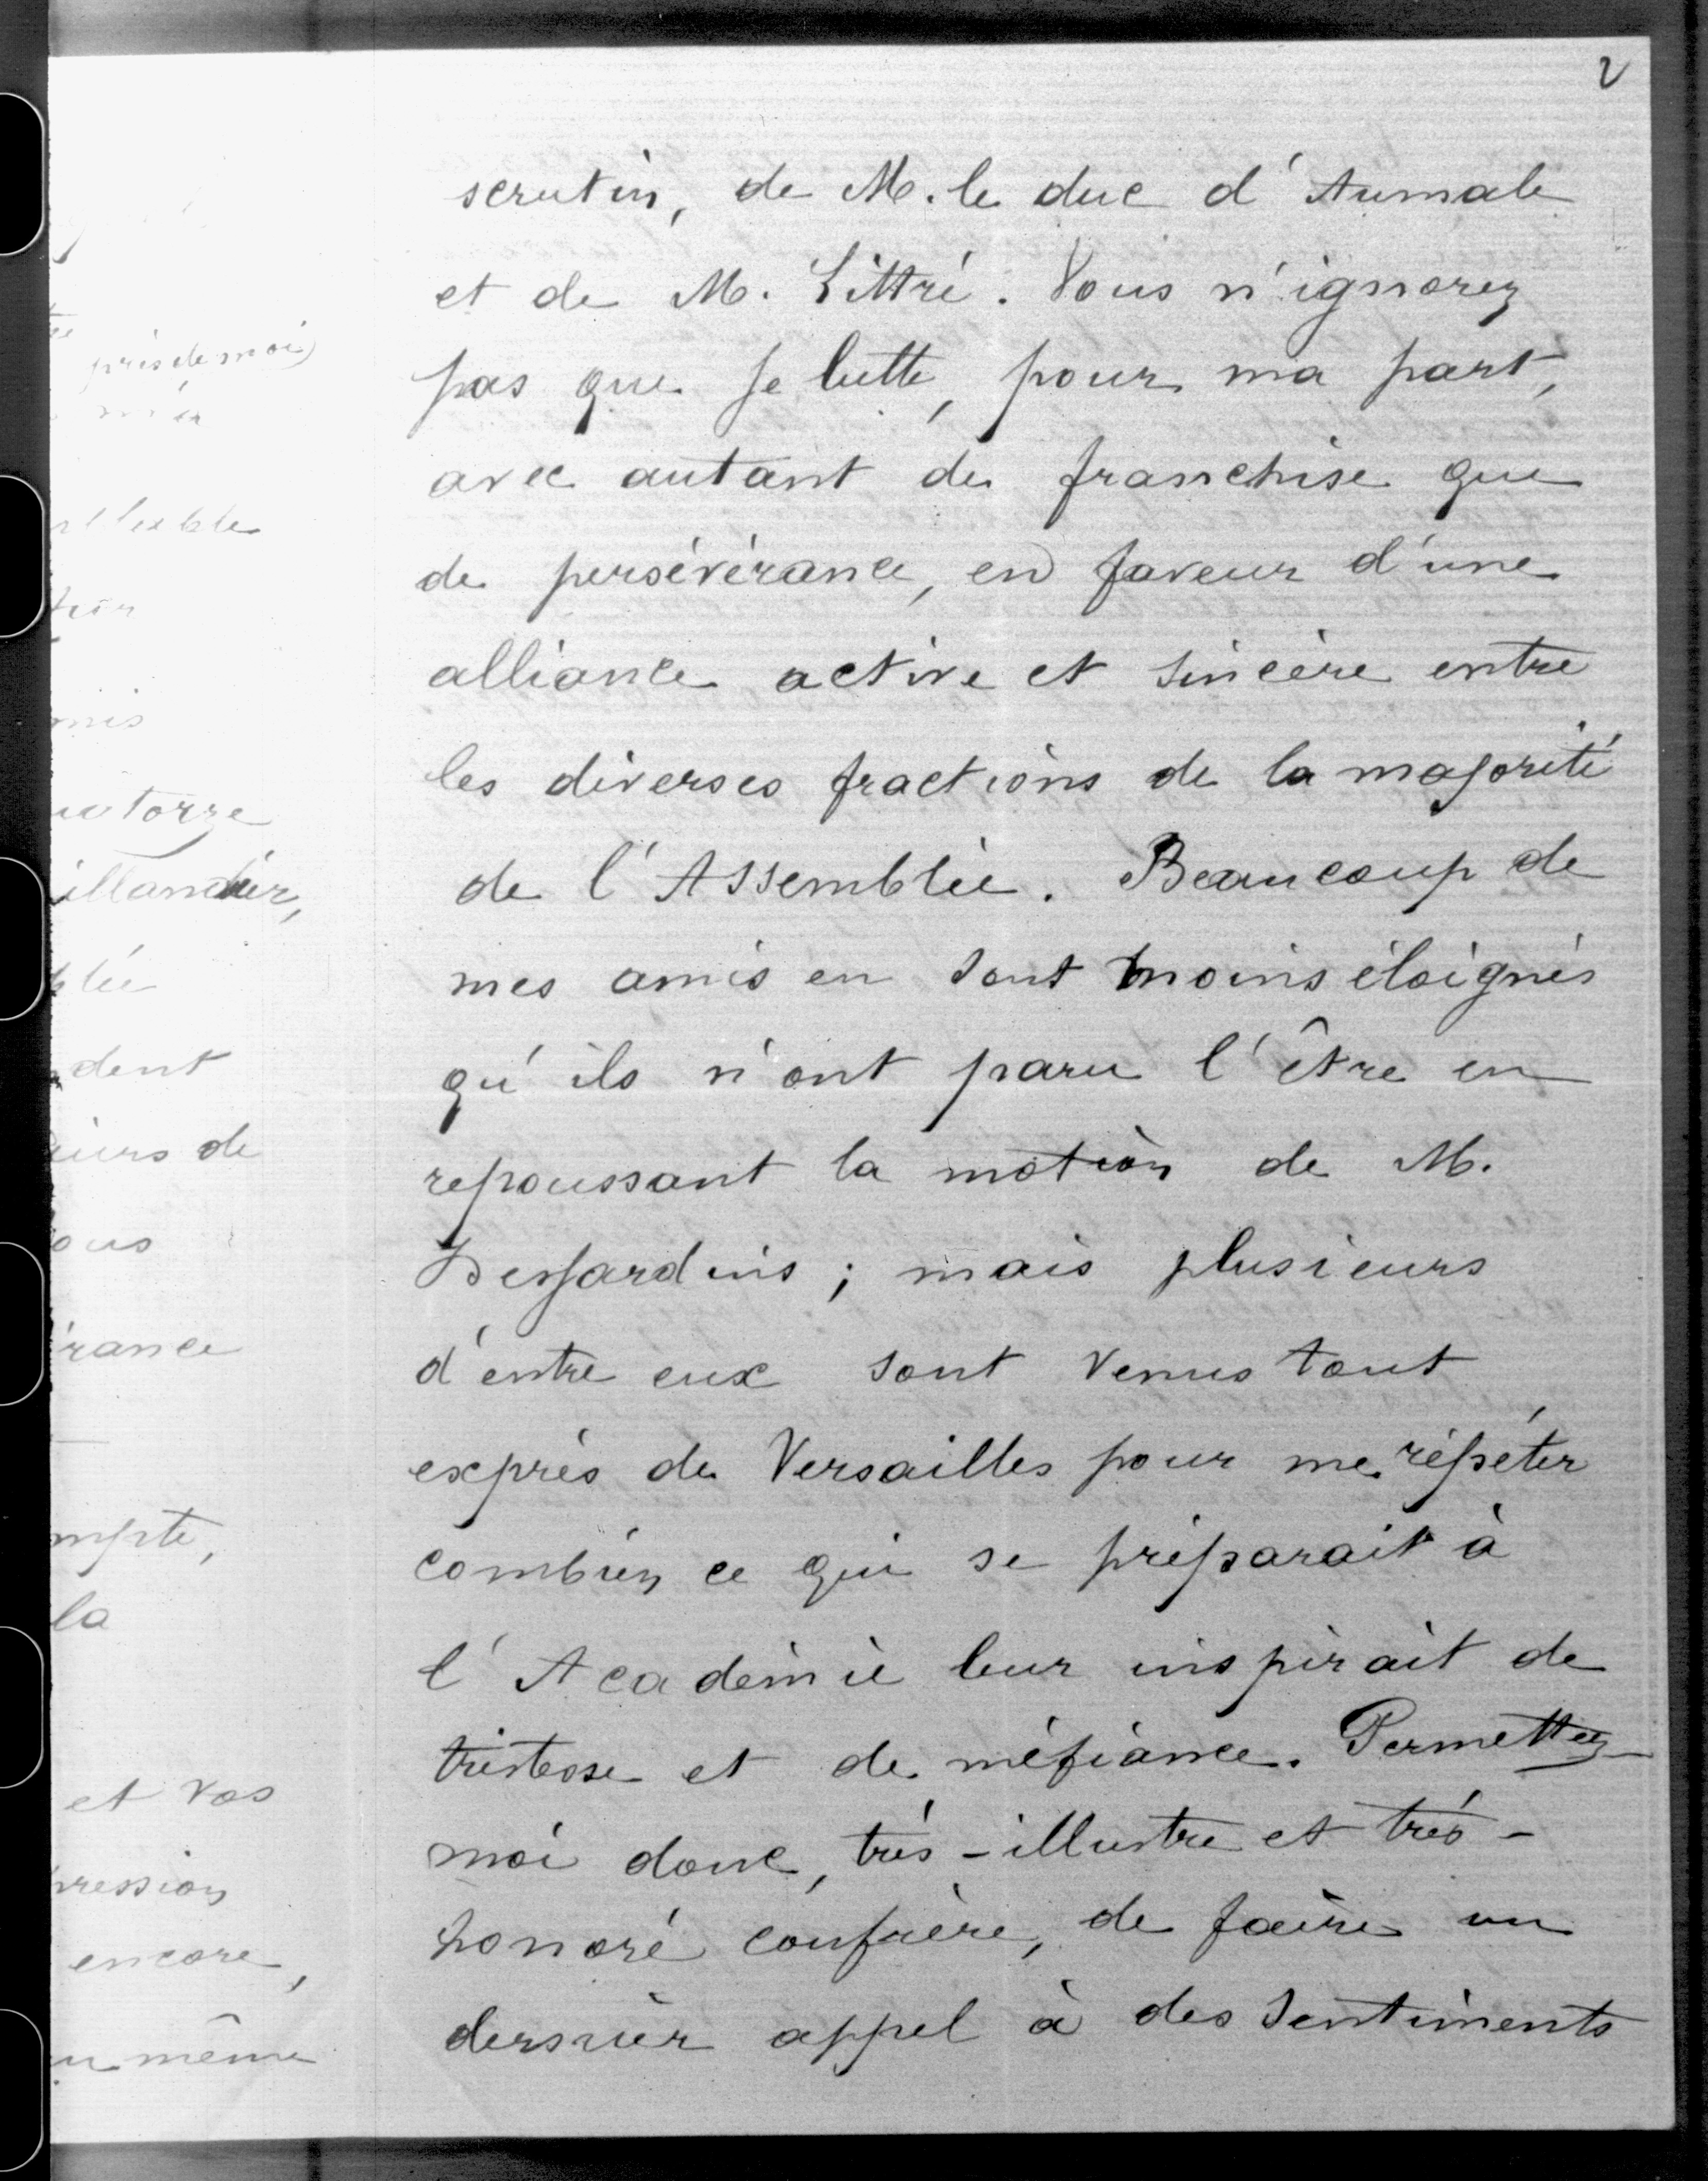 2
scrutin, de M. le duc d'Aumale
et de M. Littré. Vous n'ignorez
pas que je lutte, pour ma part,
avec autant de franchise que
de persévérance, en faveur d'une
alliance active et sincère entre
les diverses fractions de la majorité
de l'Assemblée. Beaucoup de
mes amis en sont moins éloignés
qu'ils n'ont paru l'être en
repoussant la motion de M.
Desjardins ; mais plusieurs
d'entre eux sont venus tout
exprès de Versailles pour me répéter
combien ce qui se préparait à
l'Académie leur inspirait de
tristesse et de méfiance. Permettez-
moi donc, très-illustre et très-
honoré confrère, de faire un
dernier appel à des sentiments
près de moi
mis
dent
de
ous
la
et vos
encore,
même